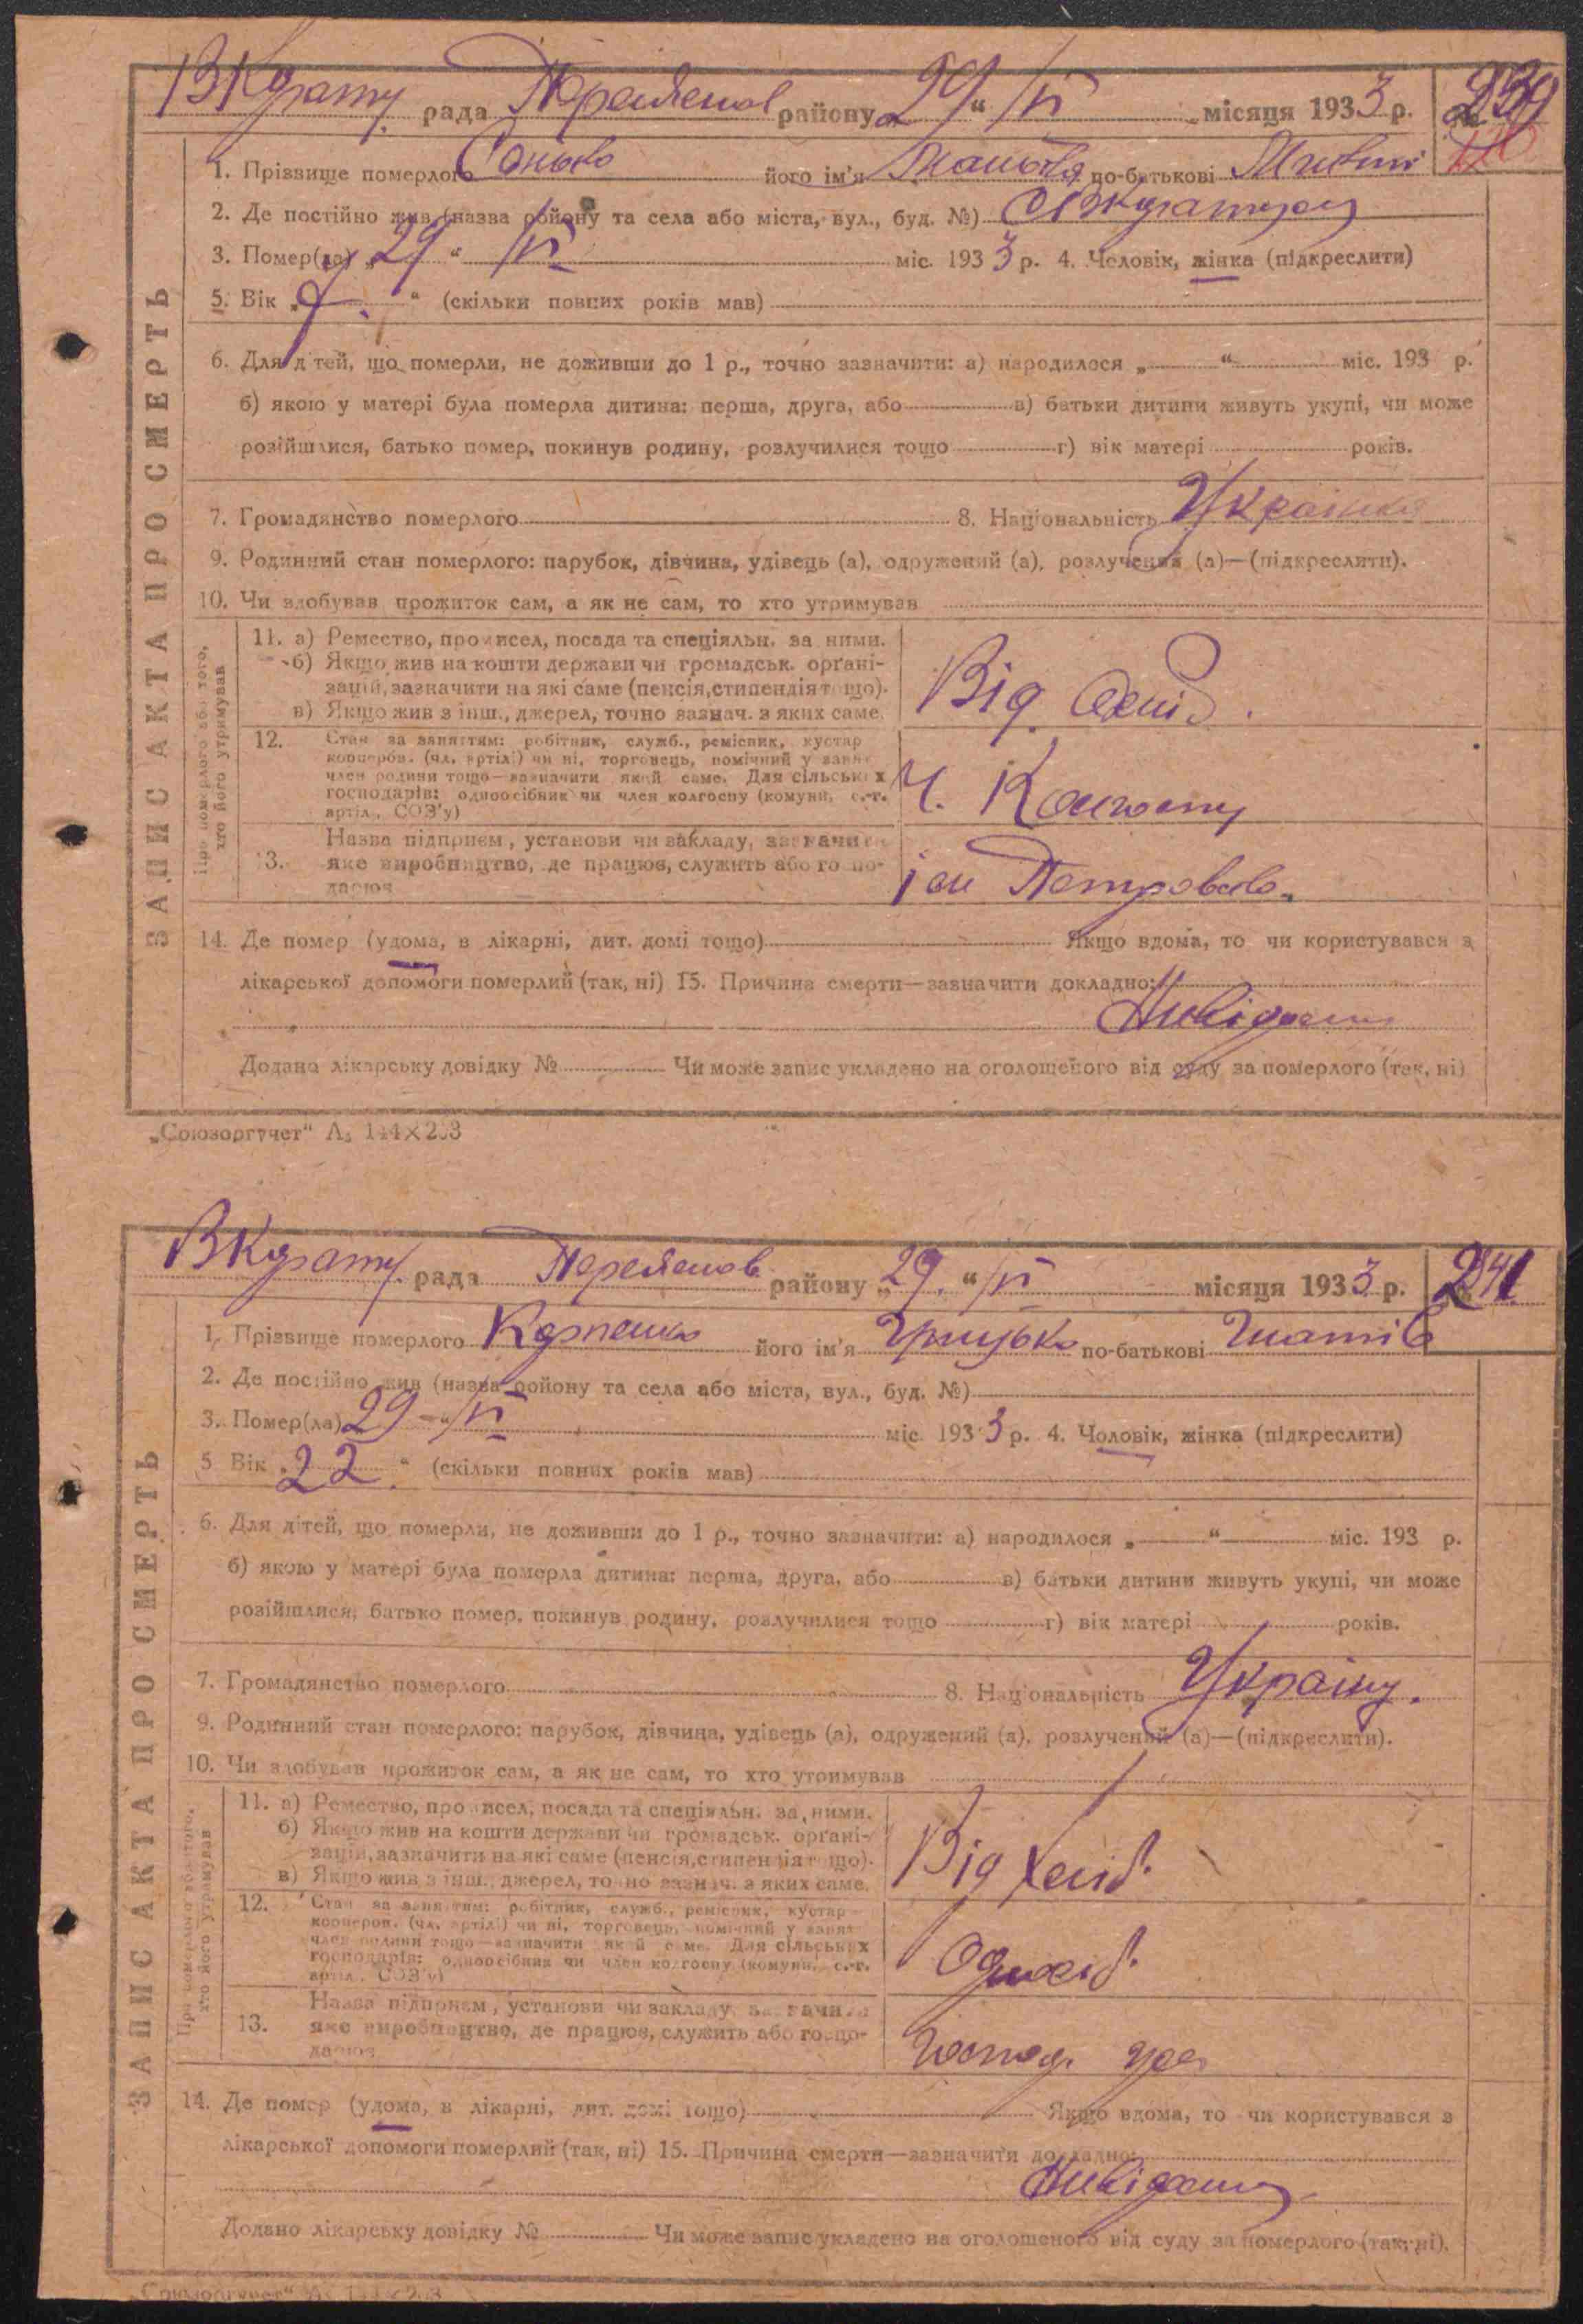 ВКарату. рада Переяслов району „29“ /VI місяця 1933 р. 239
1. Прізвище померлого Сонько його ім'я по-батькові
2. Де постійно жив (назва ройону та села або міста, вул., буд. №)
3. Помер(ла) „29“ /VI міс. 1933 р. 4. Человік, жінка (підкреслити)
5. Вік „ “ (скільки повних років мав)
6. Для дітей, що померли, не доживши до 1 р., точно зазначити: а) народилося „ “ міс. 193 р.
б) якою у матері була померла дитина: перша, друга, або в) батьки дитини живуть укупі, чи може
розійшлися, батько помер, покинув родину, розлучилися тощо г) вік матері років.
7. Громадянство померлого 8. Національність Українка
9. Родинний стан померлого: парубок, дівчина, удівець (а), одружений (а), розлучений (а)—(підкреслити).
10. Чи здобував прожиток сам, а як не сам, то хто утримував
ЗАПИС АКТА ПРО СМЕРТЬ
Про померлого або того, хто його утримував
11. а) Ремество, промисел, посада та спеціяльн. за ними.
б) Якщо жив на кошти держави чи громадськ. органі-
зацій, зазначити на які саме (пенсія, стипендія тощо).
в) Якщо жив з інш., джерел, точно зазнач. з яких саме.
Від
12. Стан за заняттям: робітник, служб., ремісник, кустар
кооперов. (чл. артілі) чи ні, торговець, помічний у занят
член родини тощо—зазначити який саме. Для сільських
господарів: одноосібник чи член колгоспу (комуни, с.-г.
артіл., СОЗ'у)
Ч. Колгоспу
13. Назва підприєм, установи чи закладу, зазначити
яке виробництво, де працює, служить або госпо-
дарює
ім Петровсько.
14. Де помер (удома, в лікарні, дит. домі тощо) Якщо вдома, то чи користувався з
лікарської допомоги померлий (так, ні) 15. Причина смерти—зазначити докладно:
Невідоми
Додано лікарську довідку № Чи може запис укладено на оголошеного від суду за померлого (так, ні)
„Союзоргучет“ А₅ 144×203
ВКарату. рада Переяслов району „29.“ /VI місяця 1933 р. 241
1. Прізвище померлого Карпенко його ім'я Грицько по-батькові Гнатів
2. Де постійно жив (назва ройону та села або міста, вул., буд. №)
3. Помер(ла) 29 “ /VI міс. 1933 р. 4. Чоловік, жінка (підкреслити)
5 Вік „22.“ (скільки повних років мав)
6. Для дітей, що померли, не доживши до 1 р., точно зазначити: а) народилося „ “ міс. 193 р.
б) якою у матері була померла дитина: перша, друга, або в) батьки дитини живуть укупі, чи може
розійшлися, батько помер, покинув родину, розлучилися тощо г) вік матері років.
7. Громадянство померлого 8. Національність Україну.
9. Родинний стан померлого: парубок, дівчина, удівець (а), одружений (а), розлучений (а)—(підкреслити).
10. Чи здобував прожиток сам, а як не сам, то хто утримував
ЗАПИС АКТА ПРО СМЕРТЬ
Про померлого або того, хто його утримував
11. а) Ремество, промисел, посада та спеціяльн. за ними.
б) Якщо жив на кошти держави чи громадськ. органі-
зацій, зазначити на які саме (пенсія, стипендія тощо).
в) Якщо жив з інш., джерел, точно зазнач. з яких саме.
Від хліб.
12. Стан за заняттям: робітник, служб., ремісник, кустар
кооперов. (чл. артілі) чи ні, торговець, помічний у занят
член родини тощо—зазначити який саме. Для сільських
господарів: одноосібник чи член колгоспу (комуни, с.-г.
артіл., СОЗ'у)
Одноосіб.
13. Назва підприєм, установи чи закладу, зазначити
яке виробництво, де працює, служить або госпо-
дарює
Господ.
14. Де помер (удома, в лікарні, дит. домі тощо) Якщо вдома, то чи користувався з
лікарської допомоги померлий (так, ні) 15. Причина смерти—зазначити докладно:
Невідоми
Додано лікарську довідку № Чи може запис укладено на оголошеного від суду за померлого (так, ні).
„Союзоргучет“ А₅ 144×203